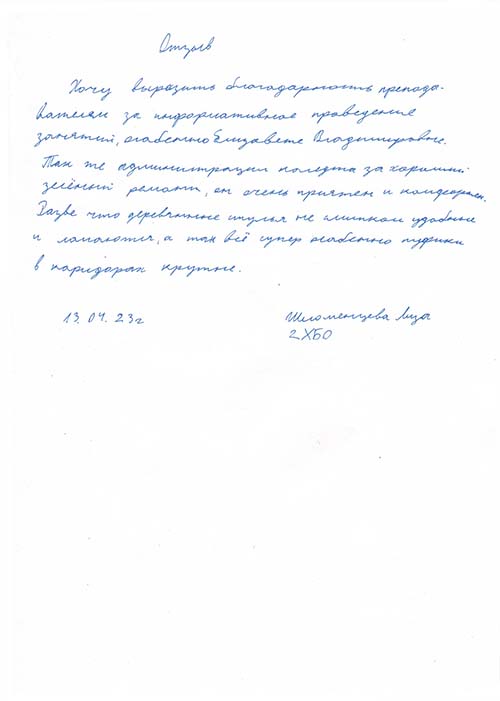 Отзыв
Хочу выразить благодарность препода-
вателям за информативное проведение
занятий, особенно Елизавете Владимировне.
Так же администрации колледжа за хороший
зелёный ремонт, он очень приятен и комфортен.
Разве что деревянные стулья не слишком удобные
и ломаются, а так всё супер особенно пуфики
в коридорах крутые.
13.04.23г
Шломенцева Лиза
2ХБО